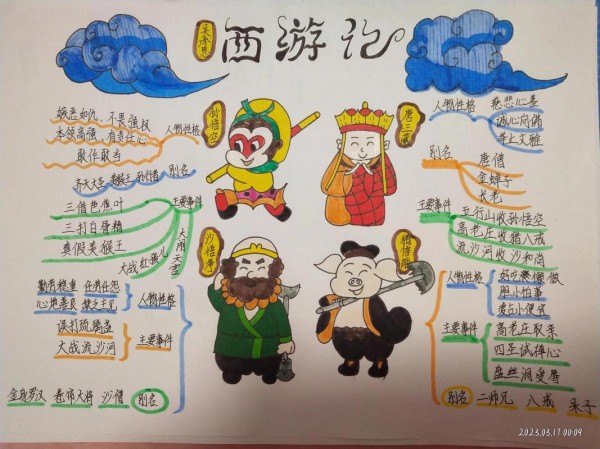 西游记
吴承恩
孙悟空
人物性格
嫉恶如仇、不畏强权
本领高强、有责任心
敢作敢当
别名
齐天大圣 美猴王 孙行者
主要事件
三借芭蕉叶
三打白骨精
真假美猴王
大战红孩儿
大闹天宫
唐三藏
人物性格
慈悲心善
诚心向佛
举止文雅
别名
唐僧
金蝉子
长老
主要事件
五行山收孙悟空
高老庄收猪八戒
流沙河收沙和尚
沙悟净
人物性格
勤劳稳重 任劳任怨
心地善良
主要事件
误打琉璃盏
大战流沙河
别名
金身罗汉 卷帘大将 沙僧
猪悟能
人物性格
好吃懒做
胆小怕事
贪占小便宜
主要事件
高老庄取亲
四圣试禅心
盘丝洞受辱
别名
二师兄 八戒 呆子
2023.03.17 00:09